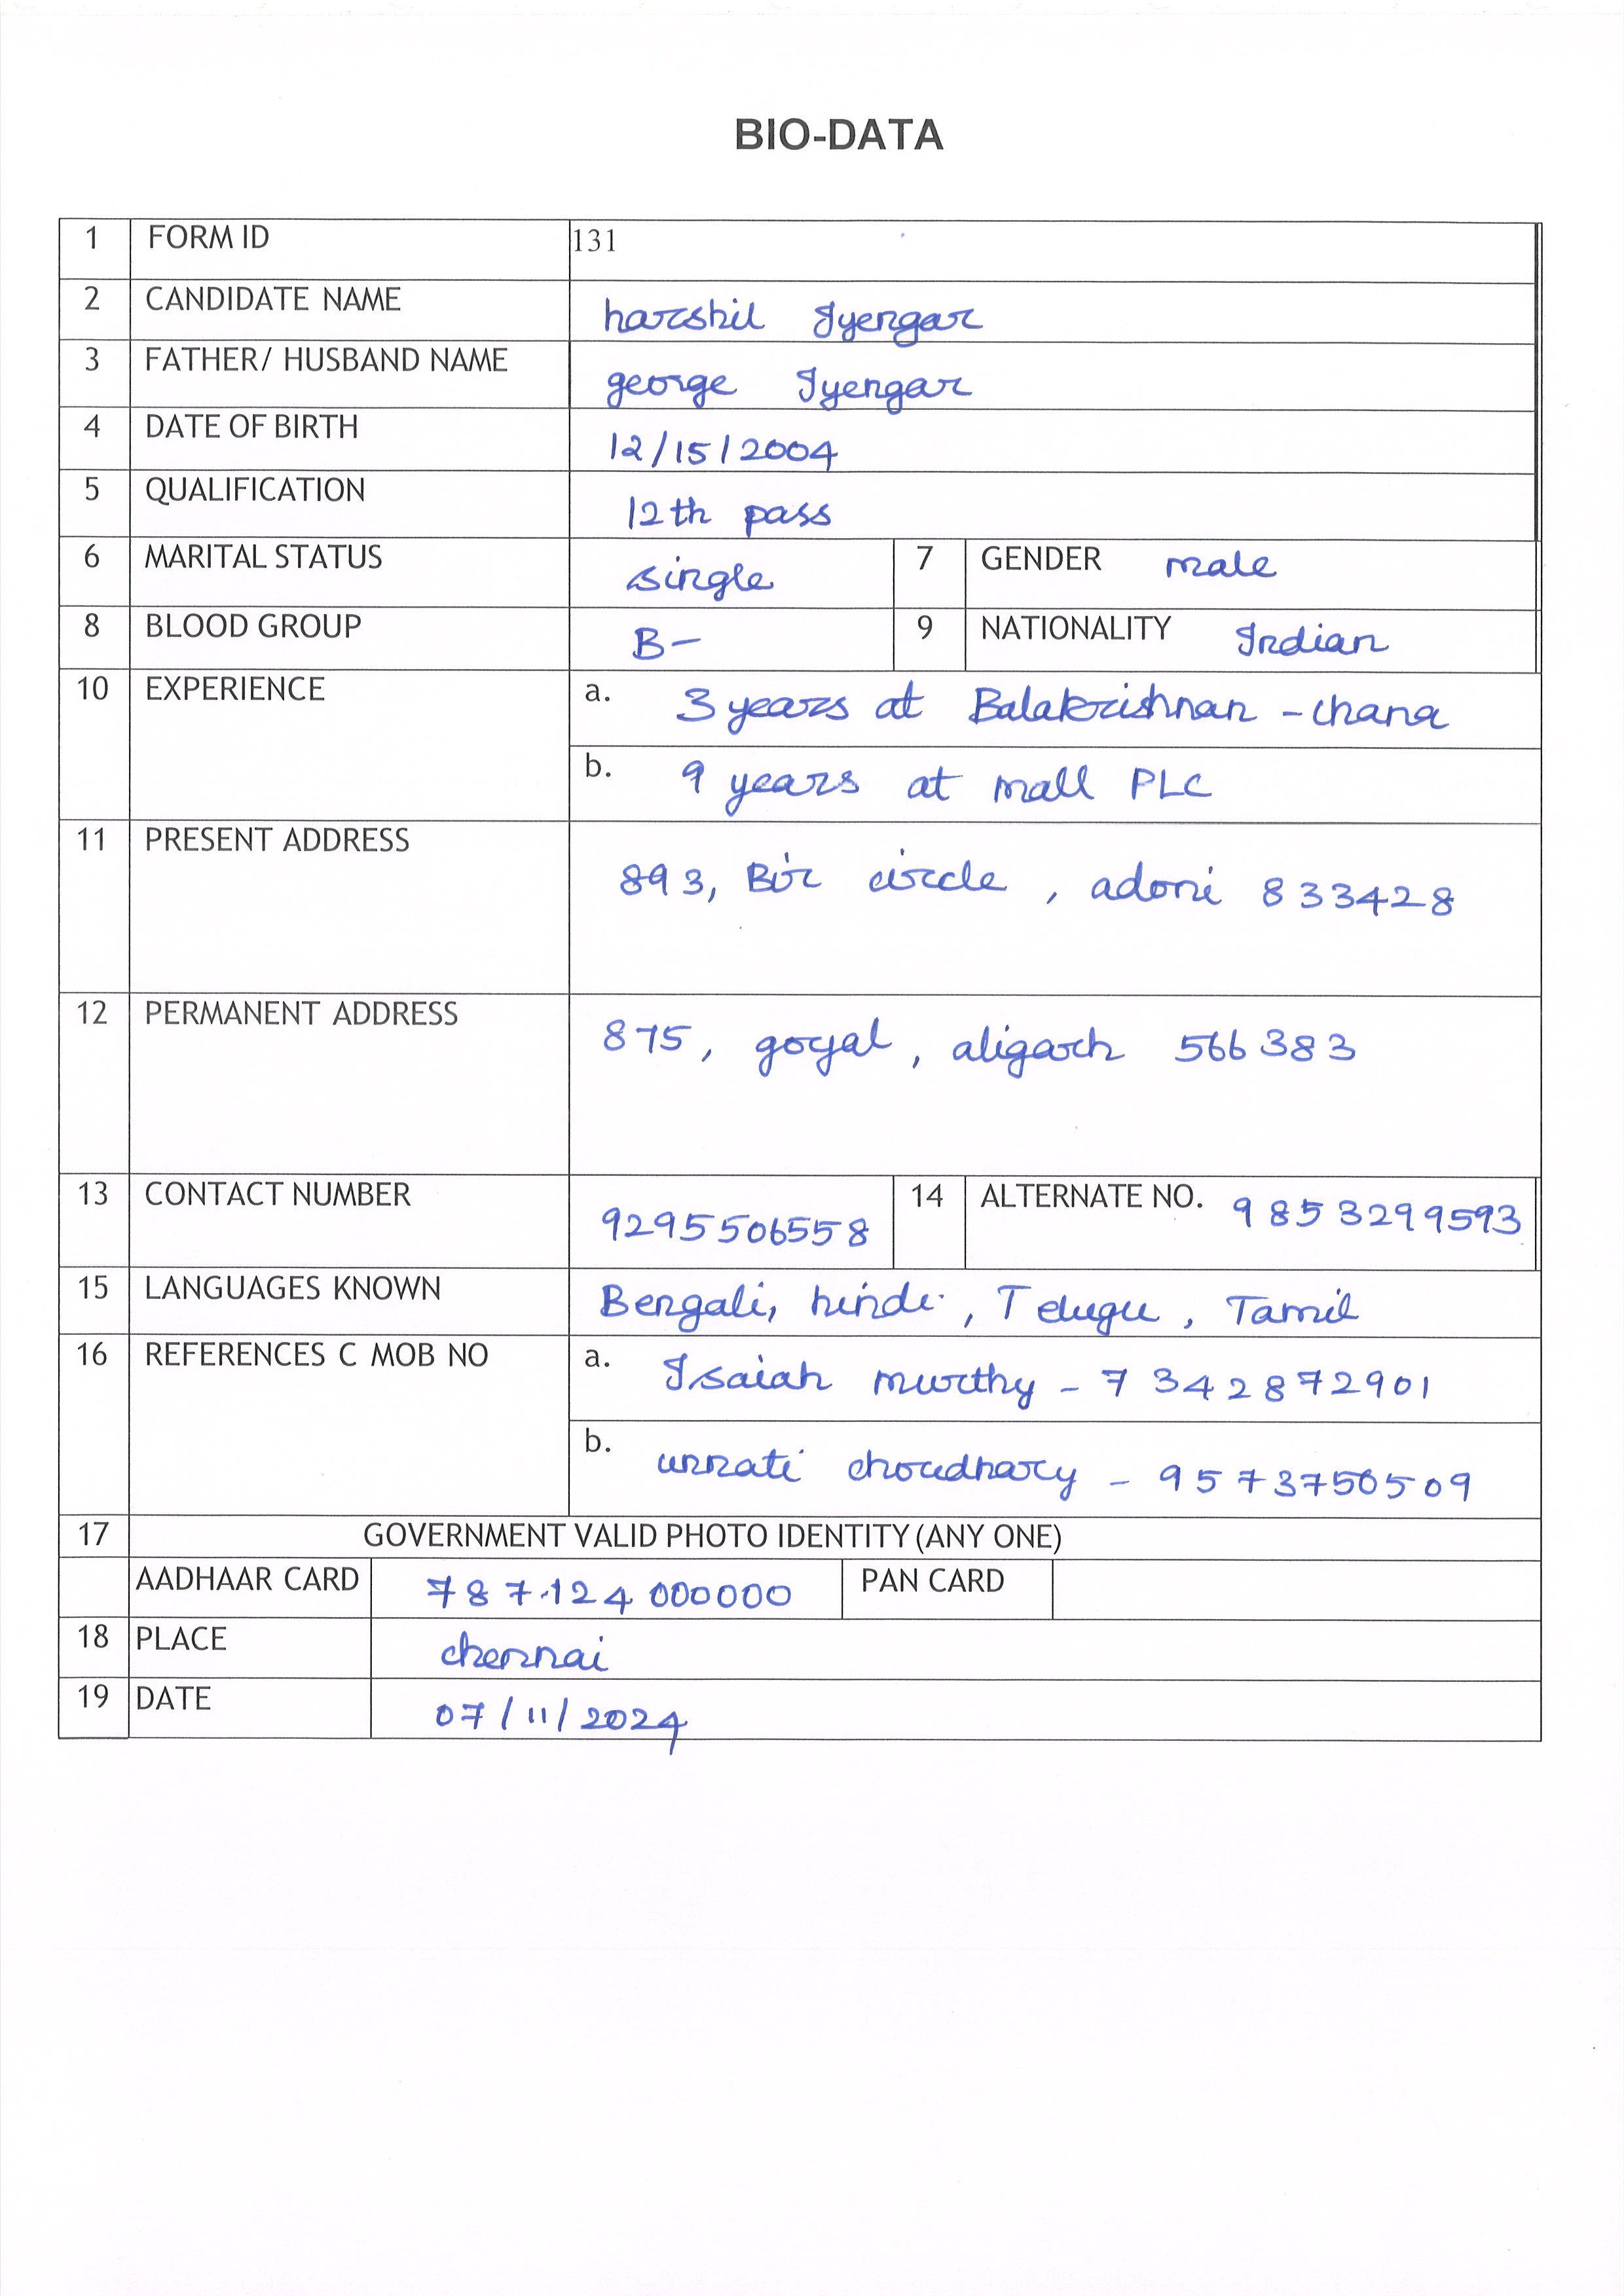 BIO-DATA
1 FORM ID 131
2 CANDIDATE NAME harshil Iyengar
3 FATHER/ HUSBAND NAME george Iyengar
4 DATE OF BIRTH 12/15/2004
5 QUALIFICATION 12th pass
6 MARITAL STATUS single 7 GENDER male
8 BLOOD GROUP B- 9 NATIONALITY Indian
10 EXPERIENCE a. 3 years at Balakrishnan - chana
b. 9 years at mall PLC
11 PRESENT ADDRESS 893, Bir circle, adoni 833428
12 PERMANENT ADDRESS 875, goyal, aligarh 566383
13 CONTACT NUMBER 9295506558 14 ALTERNATE NO. 9853299593
15 LANGUAGES KNOWN Bengali, hindi, Telugu, Tamil
16 REFERENCES C MOB NO a. Isaiah murthy - 7342872901
b. unnati choudhary - 9573750509
17 GOVERNMENT VALID PHOTO IDENTITY (ANY ONE)
AADHAAR CARD 787124000000 PAN CARD
18 PLACE chennai
19 DATE 07/11/2024